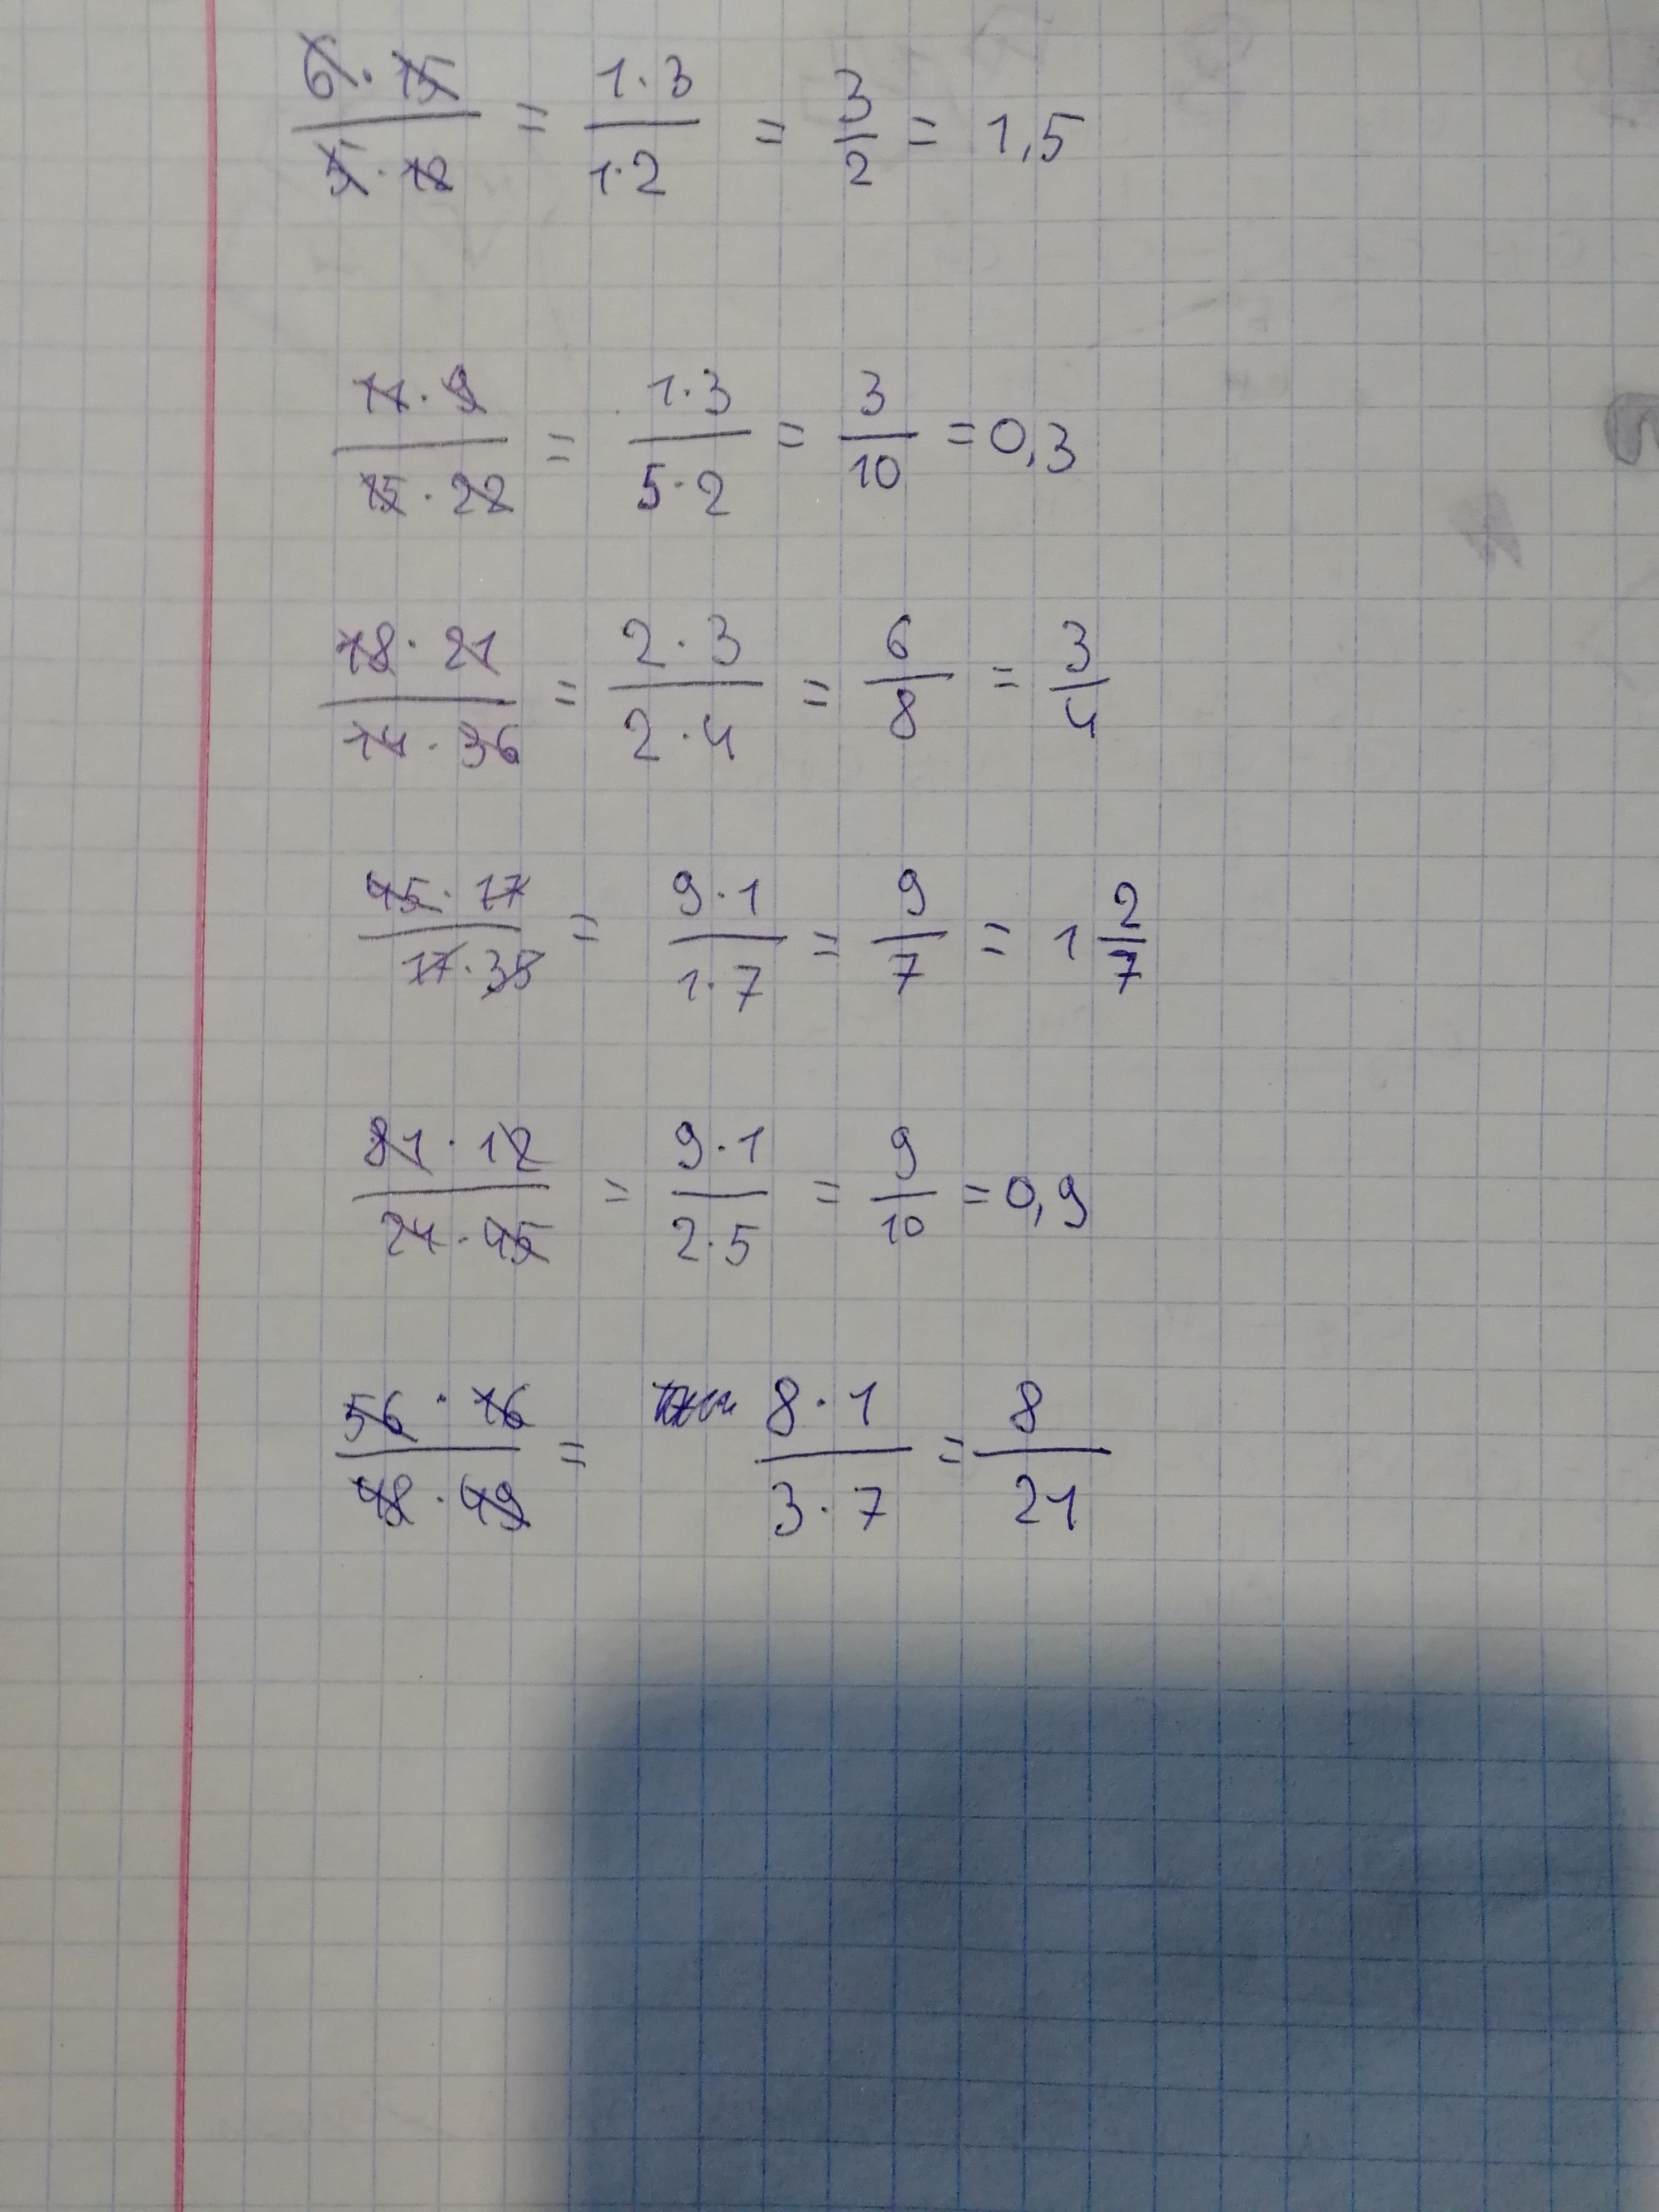 6·15/5·12 = 1·3/1·2 = 3/2 = 1,5
11·9/15·22 = 1·3/5·2 = 3/10 = 0,3
18·21/14·36 = 2·3/2·4 = 6/8 = 3/4
45·17/17·35 = 9·1/1·7 = 9/7 = 1 2/7
81·12/24·45 = 9·1/2·5 = 9/10 = 0,9
56·16/48·49 = 8·1/3·7 = 8/21